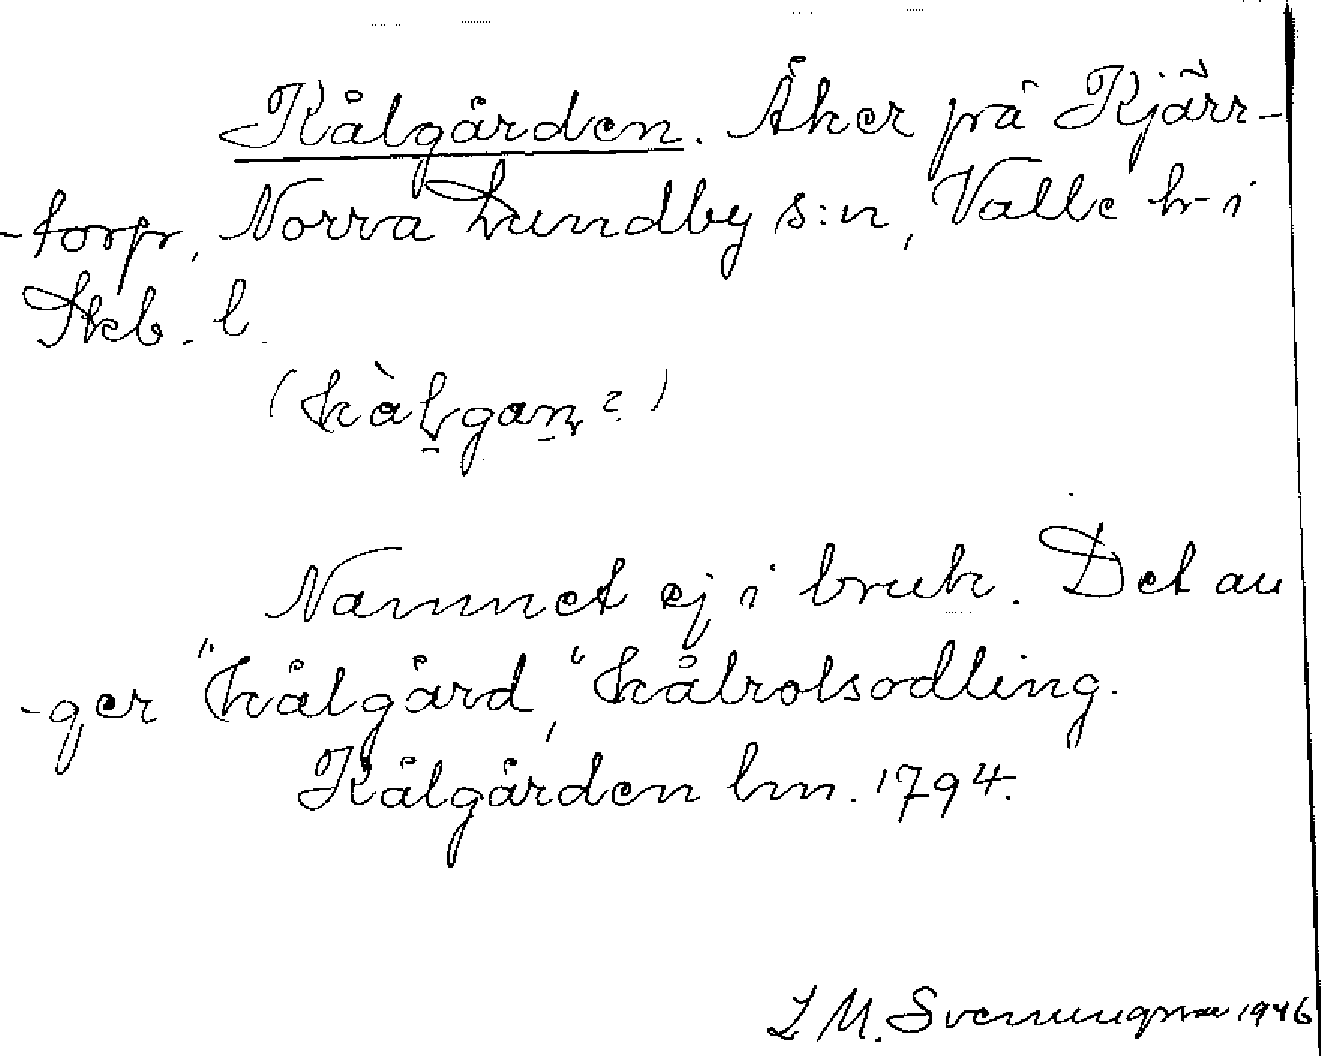 Kålgården. Åker på Kjärr-
-torp, Norra Lundby s:n, Valle h i
Skb. l.
(kàl̠gan̠ ?)
Namnet ej i bruk. Det an
-ger "kålgård", kålrotsodling.
Kålgården lm. 1794.
L M. Svenungsson 1946